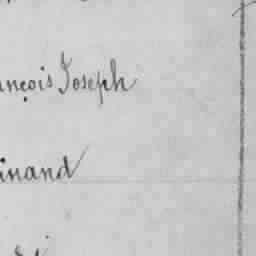 ançois Joseph
inand